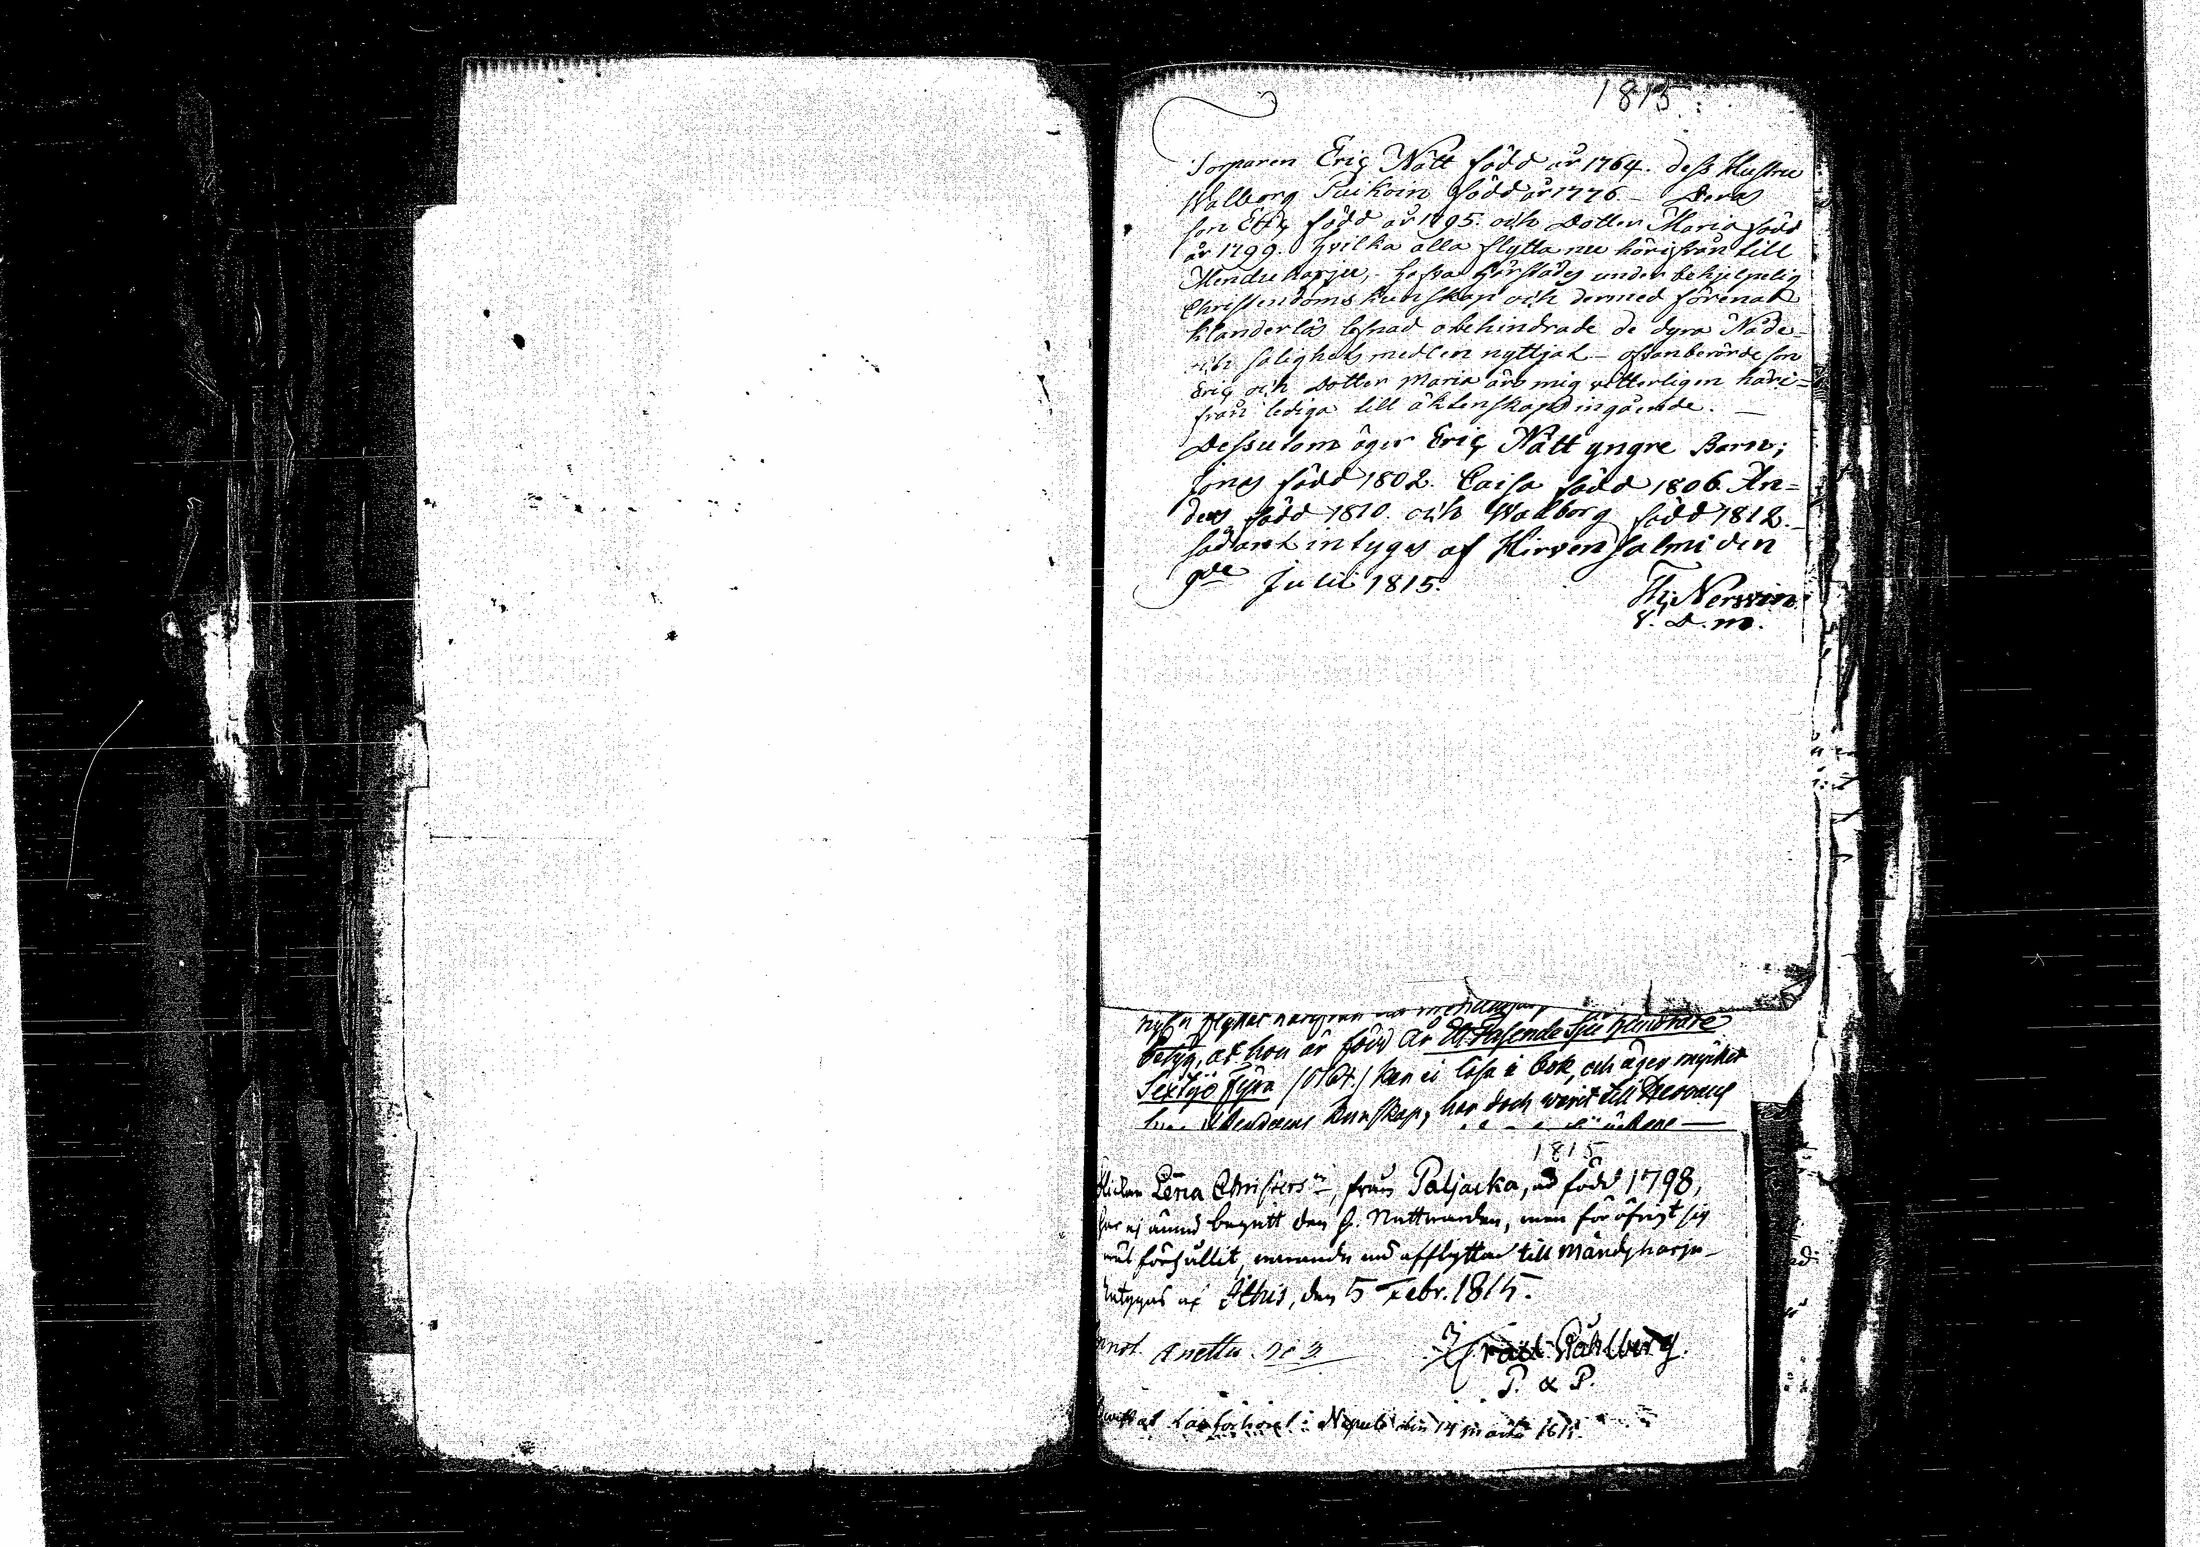 1815
Torparen Eric Nätt född år 1764. dess Hustru
Walborg Puikoin född år 1776 – Deras
son Eric född år 1795. och Dotter Maria född
år 1799. hvilka alla flytta nu härifrån till
Mendueharju, – hafva härstädes under behjelpelig
Christendoms kunskap och dermed förenad
klanderlös lefnad obehindrade de dyra Nåde-
och salighets medlen nyttjat – ofvanberörde son
Eric och Dotter Maria äro mig vetterligen häri=
från lediga till äktenskaps ingående. –
Dessutom äger Eric Nätt yngre Barn;
Jonas född 1802. Caisa född 1806. An=
ders född 1810. och Walborg född 1812. –
sådant intygas af Hirvensalmi den
9de Julii 1815.
Th: Nervin
V. D. M.
betyg, at hon är född År Ett tusende sju hundrade
Sextijo fyra /1764./ kan ei läsa i bok, och äger mycket
kunskap, har doch warit till Herrans
1815
Pickan Lena Christersdr, från Paljacka, är född 1798,
har ej ännu begått den H. Nattvarden, men för öfrigt sig
väl förhållit, varande nu afflyttad till Mändyharju –
intygas af Ithis, den 5 Febr. 1815.
annot. Anettu N: 3
Råhlberg.
P. & P.
den 14 martii 1815.